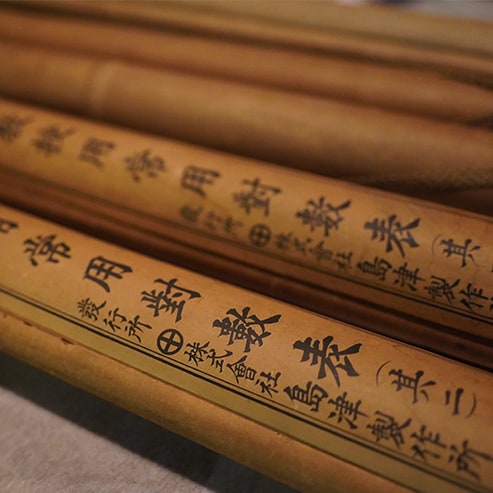 用常用對數表（其
發行所 ㊉ 株式會社島津製作
常用對數表（其二）
發行所 ㊉ 株式會社島津製作所